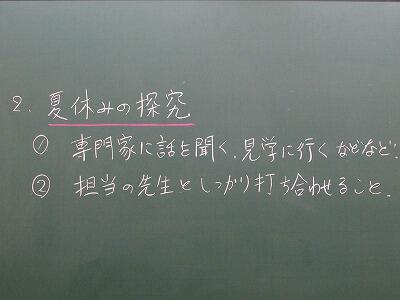 2. 夏休みの探究
① 専門家に話を聞く、見学に行くなどなど.
② 担当の先生としっかり打ち合わせること.